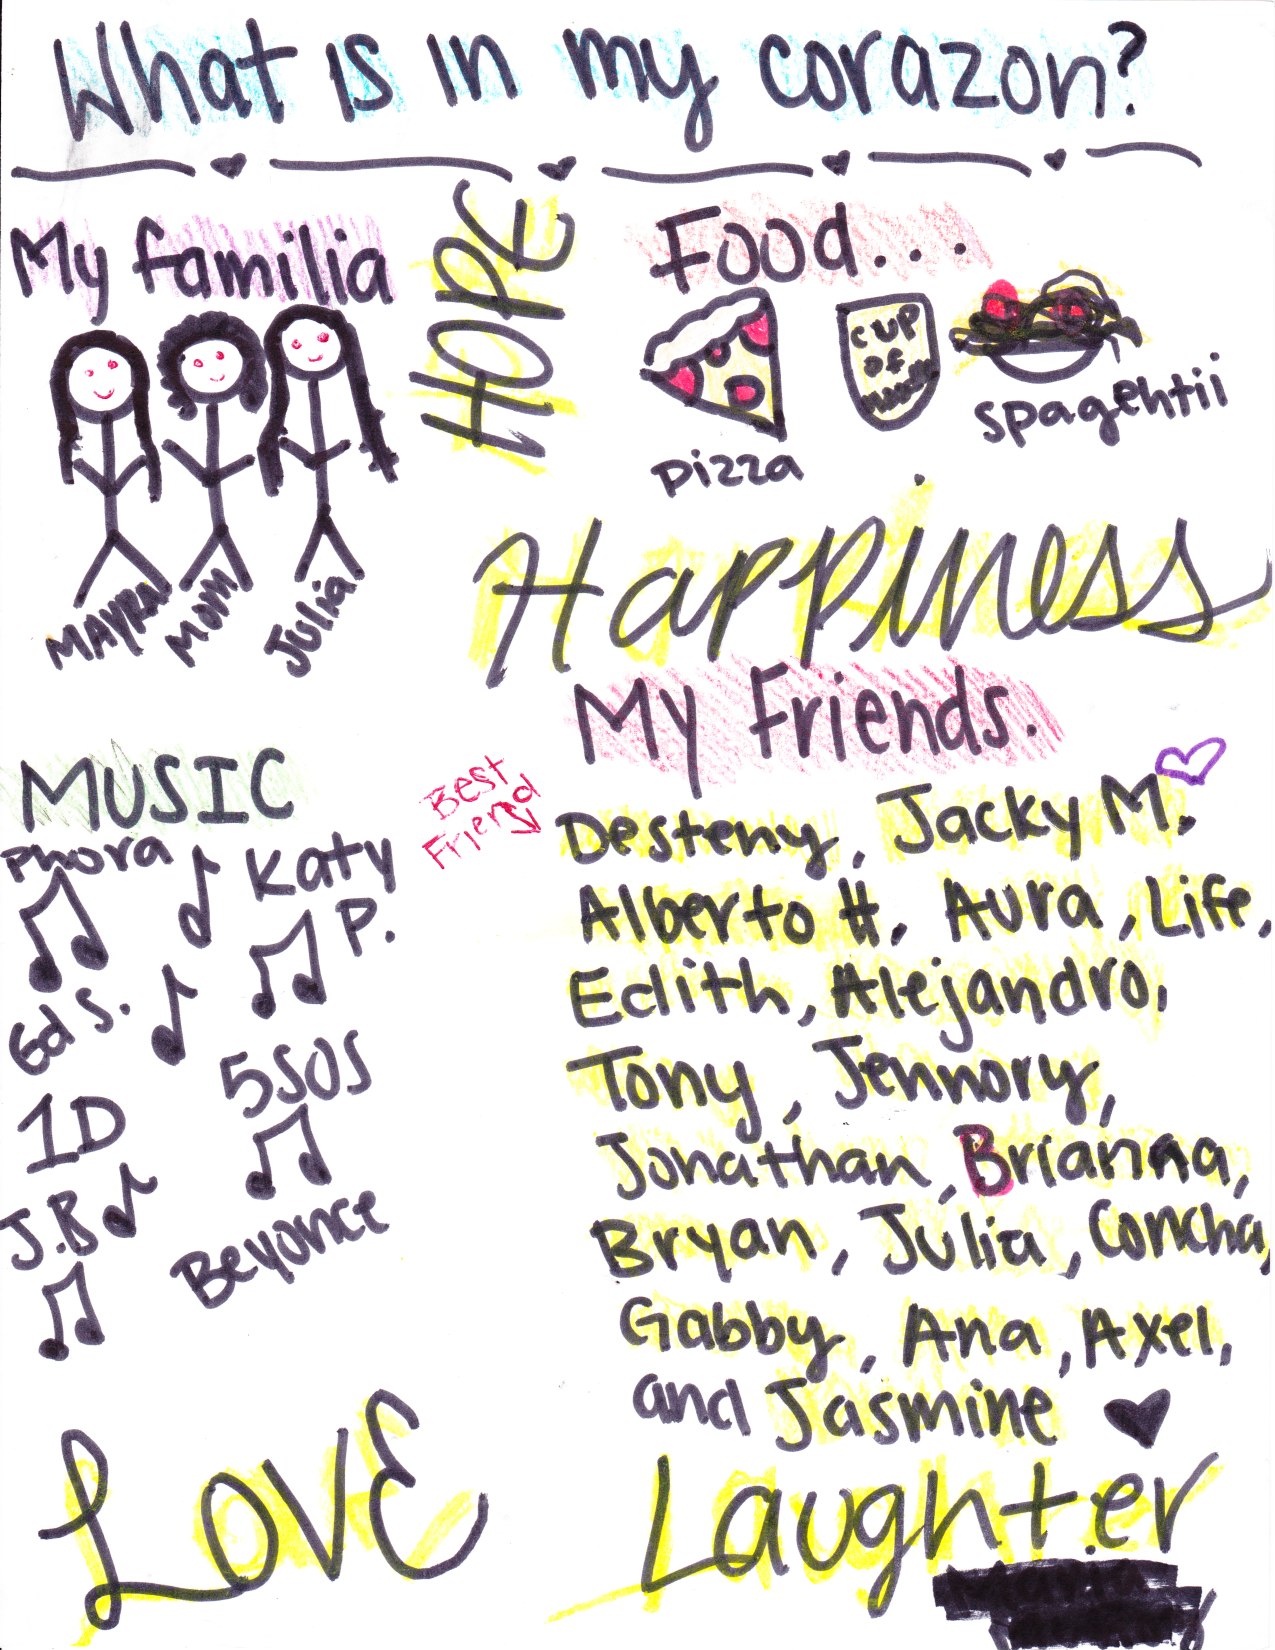 What is in my corazon?
My familia
MAYRA
MOM
Julia
HOPE
Food...
pizza
CUP
OF
spagehtii
Happiness
My Friends.
Best
Friend
Desteny, Jacky M,
Alberto H, Aura, Life,
Edith, Alejandro,
Tony, Jennory,
Jonathan, Brianna,
Bryan, Julia, Concha,
Gabby, Ana, Axel,
and Jasmine
MUSIC
Phora
Katy
P.
Ed S.
5SOS
1D
J.B
Beyonce
LOVE
Laughter